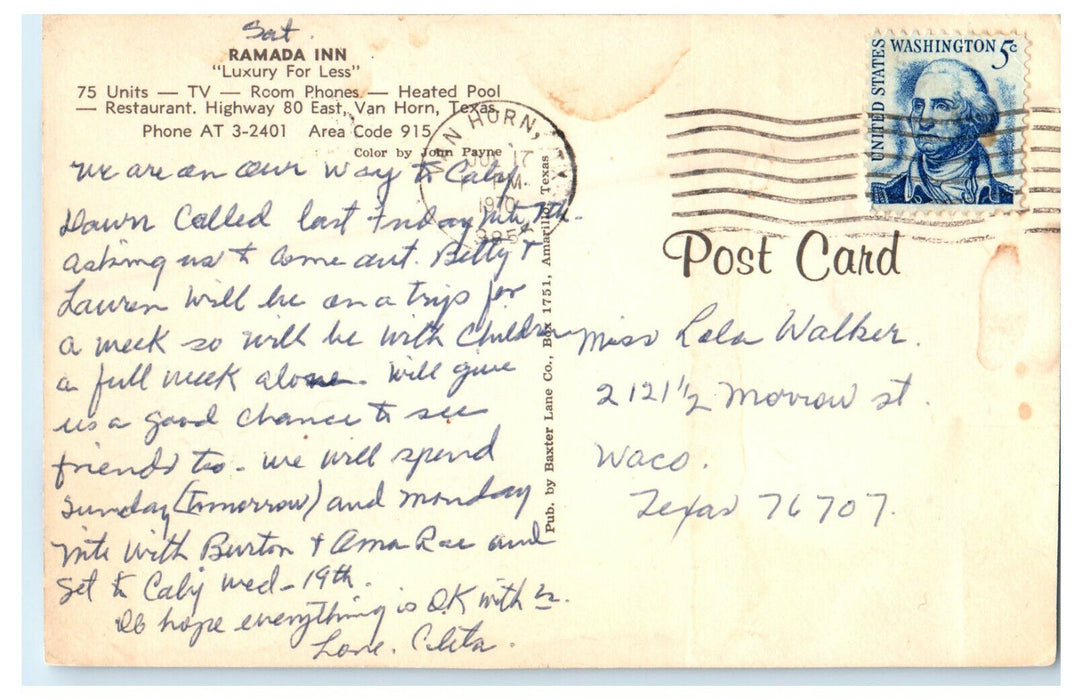 Sat.
RAMADA INN
"Luxury For Less"
75 Units — TV — Room Phones — Heated Pool
— Restaurant. Highway 80 East, Van Horn, Texas
Phone AT 3-2401 Area Code 915
Color by John Payne
We are on our way to Calif
Dawn called last Friday nite 7th-
asking us to come out. Betty &
Lauren will be on a trip for
a week so will be with children
a full week alone. Will give
us a good chance to see
friends too. We will spend
Sunday (Tomorrow) and Monday
nite with Burton & Oma Rae and
get to Calif Wed-19th.
Do hope everything is O.K with
Love. Cleta.
Pub. by Baxter Lane Co., Box 1751, Amarillo, Texas
VAN HORN, TX
17
PM
1970
UNITED STATES
WASHINGTON 5c
Post Card
Miss Lola Walker.
2121 1/2 Morrow st.
Waco.
Texas 76707.